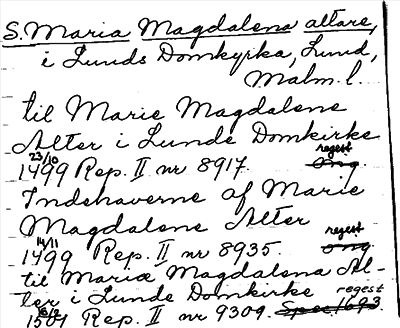 S. Maria Magdalena altare,
i Lunds Domkyrka, Lund,
Malm. l.
til Marie Magdalene
Alter i Lunde Domkirke
23/10 regest
1499 Rep. II nr 8917. Orig.
Indehaverne af Marie
Magdalene Alter
14/11 regest
1499 Rep. II nr 8935. Orig
til Mariæ Magdalena Al-
ter i Lunde Domkirke regest
1501 Rep. II nr 9309.